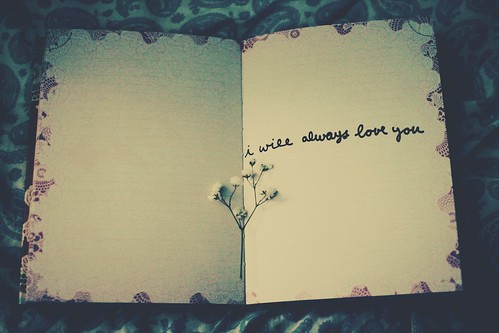 i will always love you